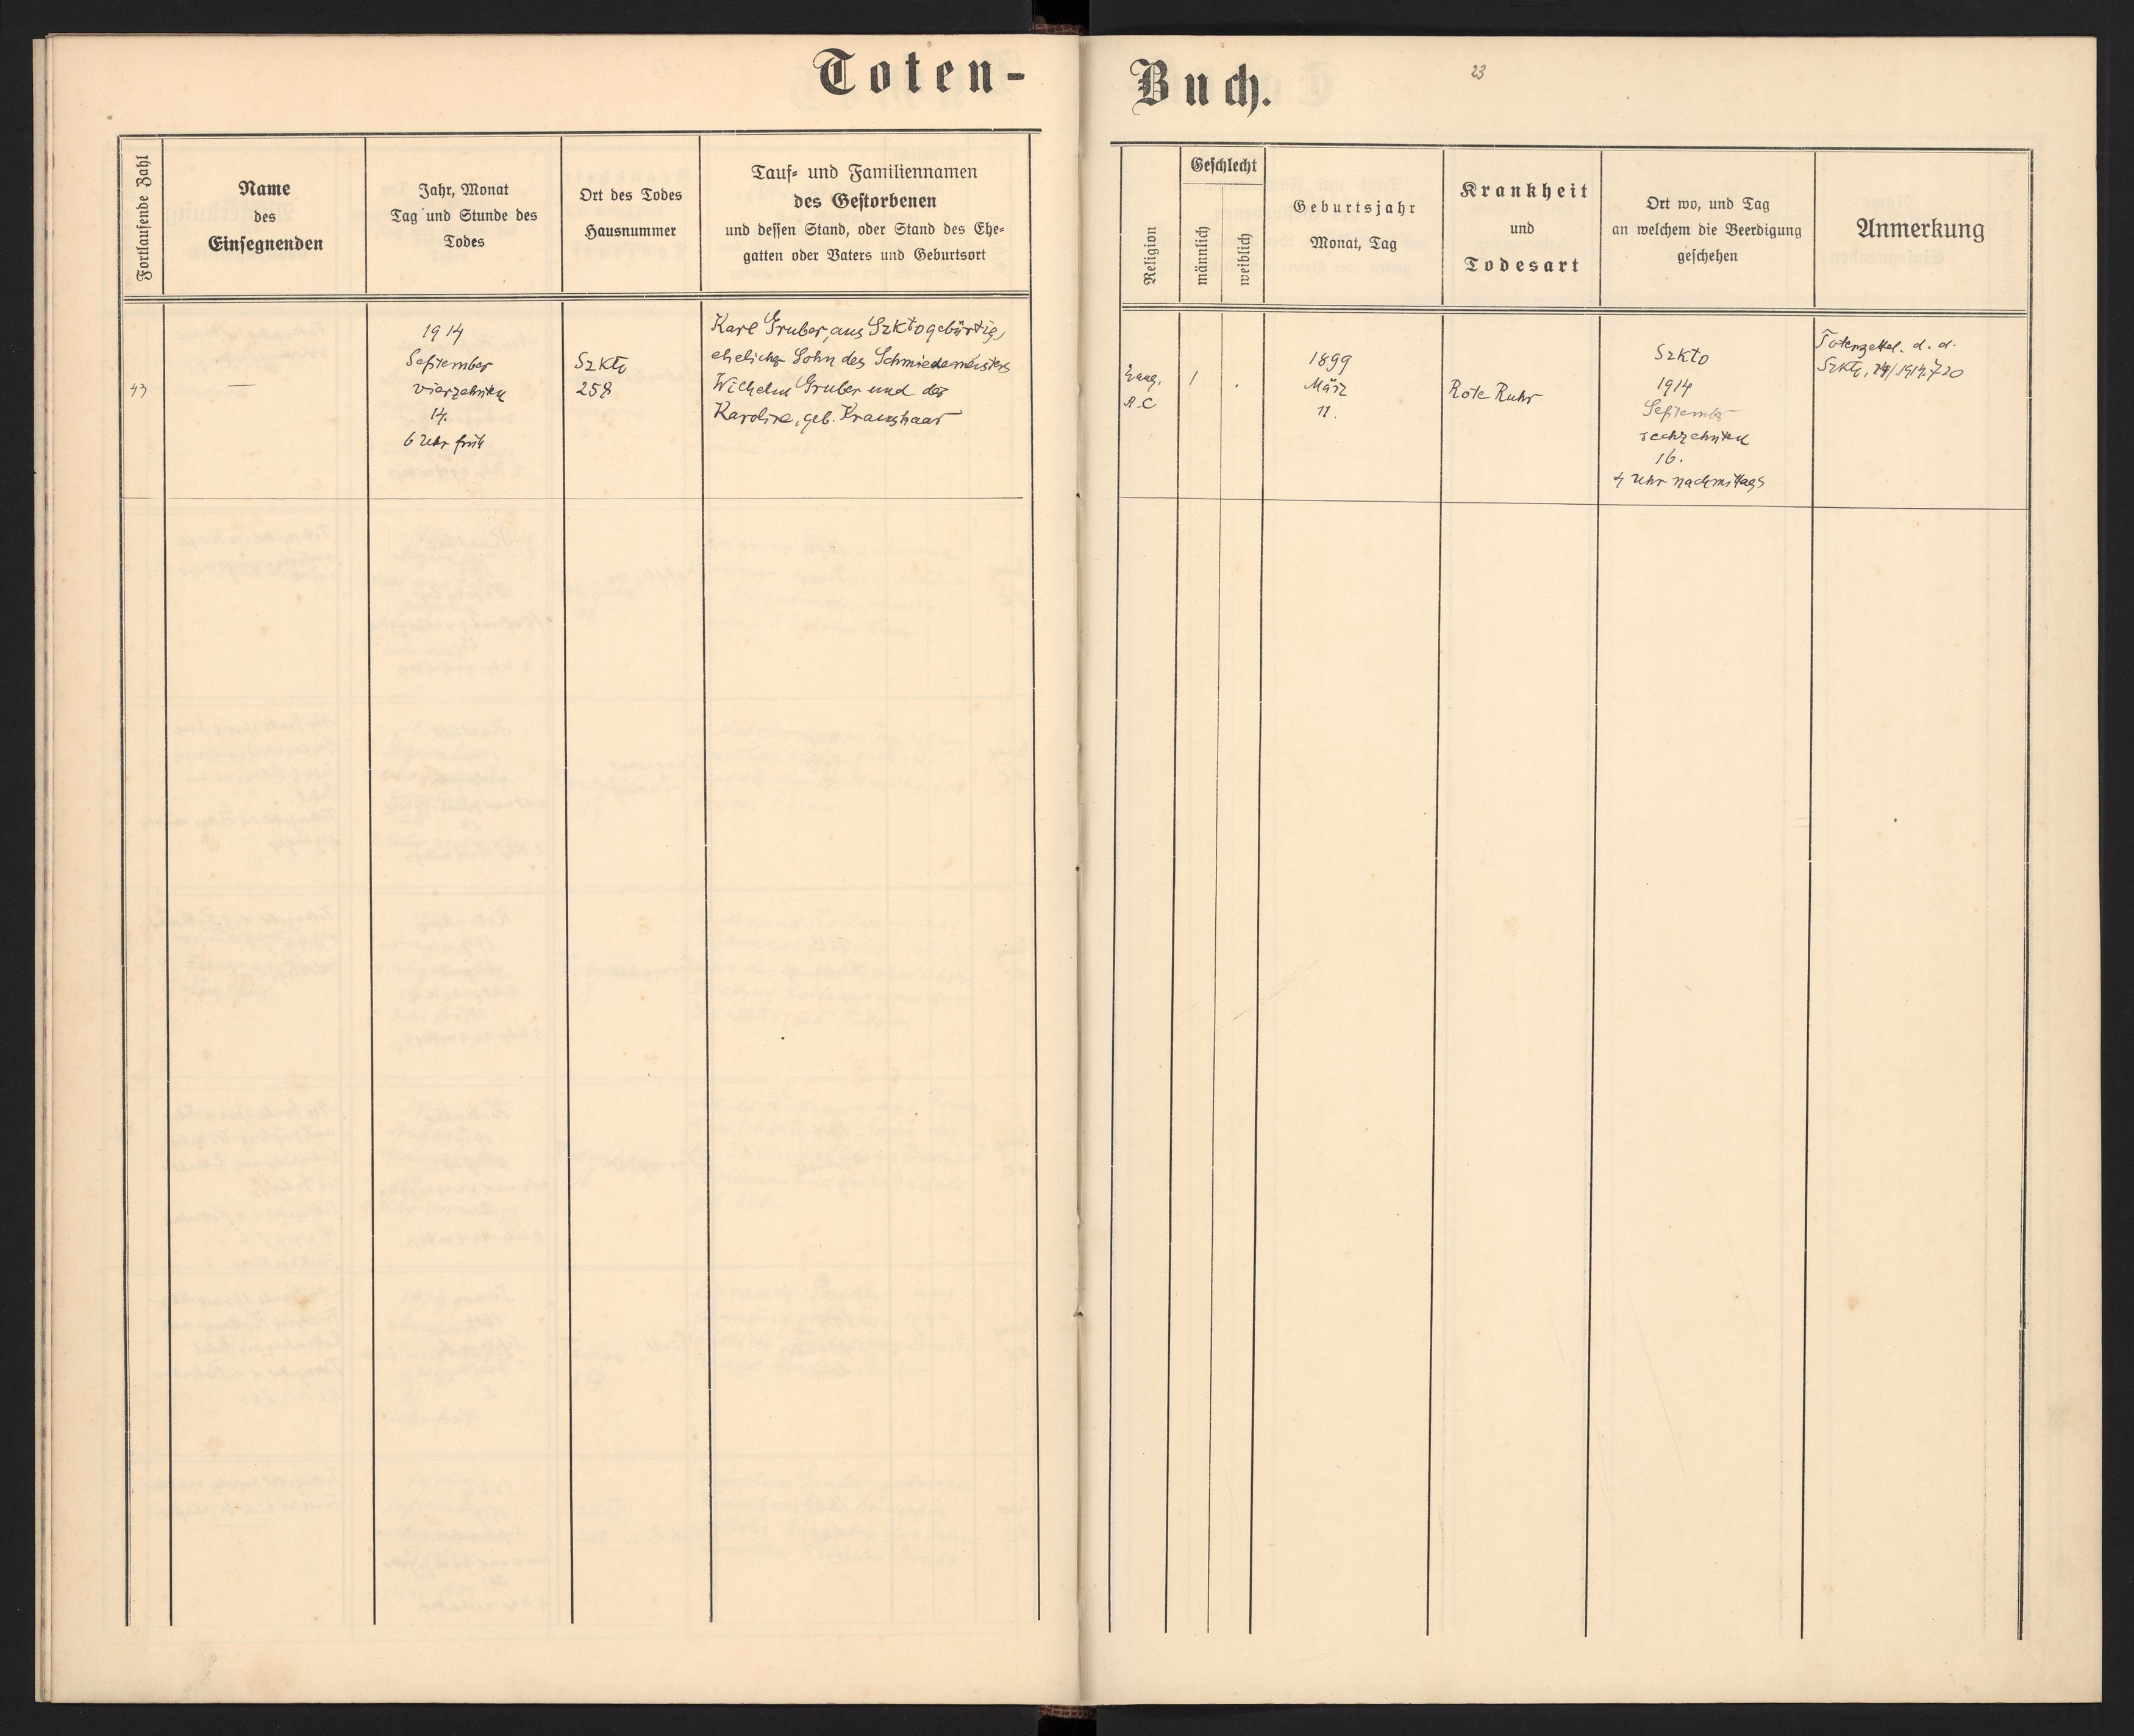 Toten-
Buch.
23
Fortlaufende Zahl
Name
des
Einsegnenden
Jahr, Monat
Tag und Stunde des
Todes
Ort des Todes
Hausnummer
Tauf- und Familiennamen
des Gestorbenen
und dessen Stand, oder Stand des Ehe-
gatten oder Vaters und Geburtsort
Religion
Geschlecht
männlich
weiblich
Geburtsjahr
Monat, Tag
Krankheit
und
Todesart
Ort wo, und Tag
an welchem die Beerdigung
geschehen
Anmerkung
43
—
1914
September
vierzehnten
14.
6 Uhr früh
Szkto
258
Karl Gruber, aus Szkto gebürtig,
ehelicher Sohn des Schmiedemeisters
Wilhelm Gruber und der
Karoline, geb. Kraushaar
Evang.
A.C
1
.
1899
März
11.
Rote Ruhr
Szkto
1914
September
sechzehnten
16.
4 Uhr nachmittags
Totenzettel. d. d.
Szkto,